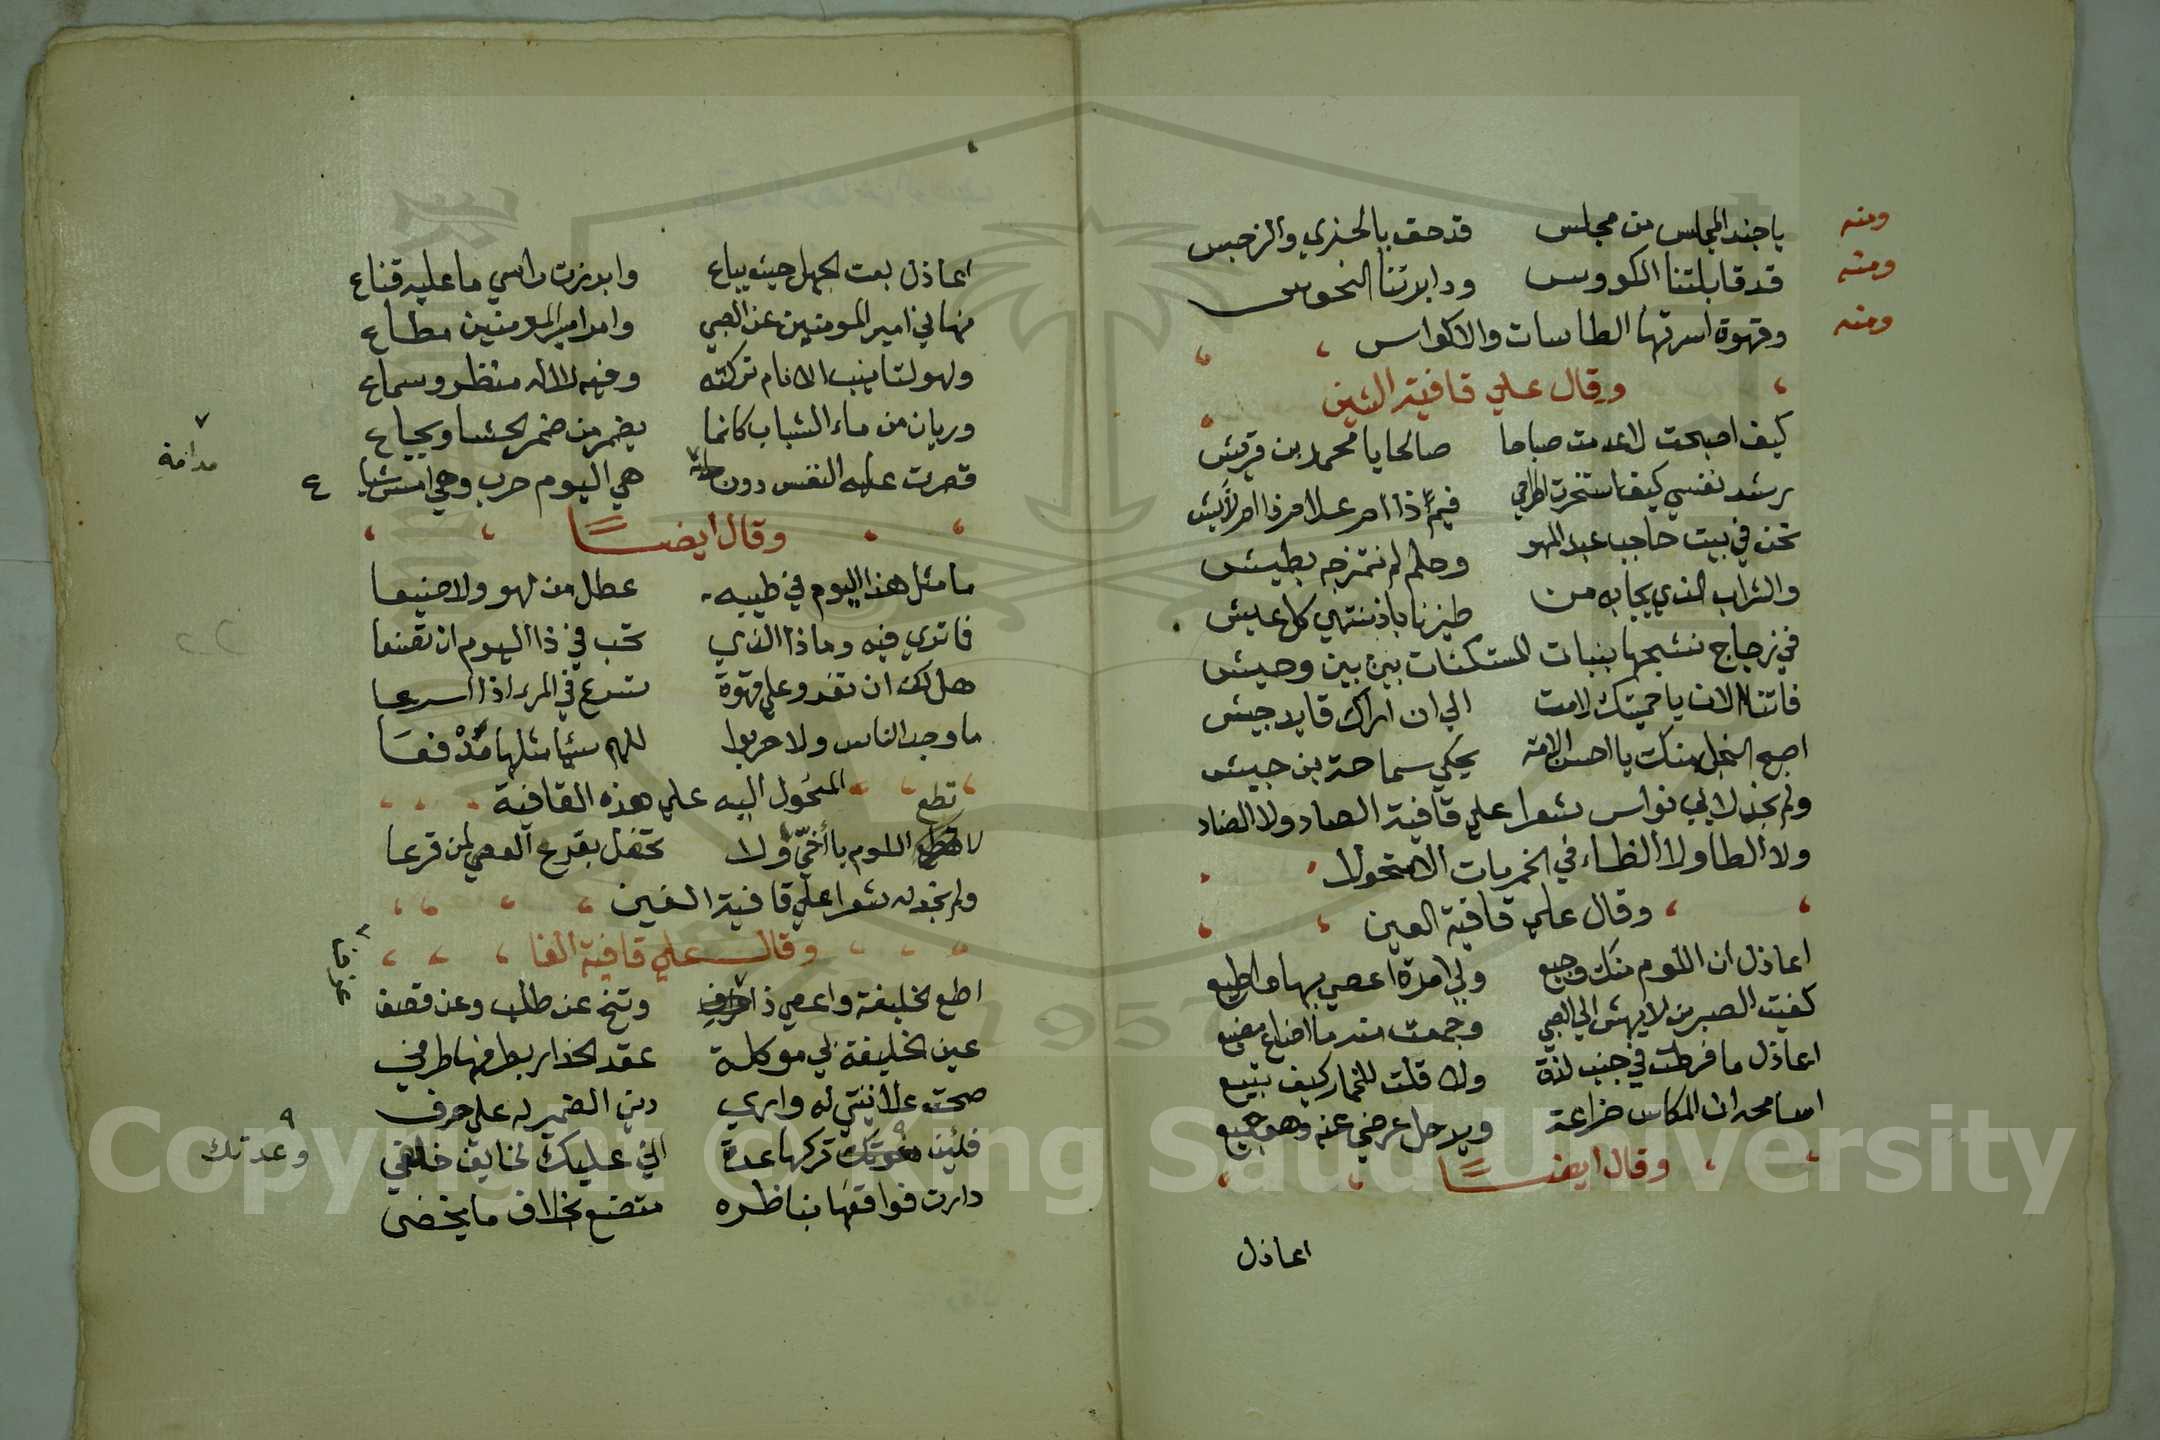 ومنه
يا جند المجلس من مجلس قد حف بالخيري والنرجس
ومنه
قد قابلتنا الكووس ودابرتنا النحوس
ومنه
وقهوة اسرتها الطاسات والاكواس
وقال علي قافية الشين
كيف اصبحت لا عدمت صباحا صالحا يا محمد بن قريش
يرشد نفسي كيف استخرت اطراحي
نحن في بيت حاجب عبد المهو وحلم لم نمتزجه بطيش
والشراب الذي يجابه من طيزناباذ ننتهي كل عيش
في زجاج نشجها بنبات المستكنات بين بين وحيش
فاتنا الان يا حميتك لامت الي ان اراك قايد جيش
اصبح البخل منك يا احسن الامة يحكي سماحة بن حبيش
ولم نجد لابي نواس شعرا علي قافية الصاد ولا الضاد
ولا الطا ولا الظاء في الخمريات الا منحولا
وقال علي قافية العين
اعاذل ان اللوم منك وجيع ولي امرة اعصي بها واطيع
كفيت الصبي من لا يهش الي الصبي وجمعت منه ما اضاع مضيع
اعاذل ما فرطت في جنب لذة ولا قلت للخمار كيف تبيع
اسامحه ان المكاس ضراعة ويرحل عرضي عنه وهو جميع
وقال ايضًا
اعاذل
اعاذل بعت الجهل حيث يباع وابرزت راسي ما عليه قناع
نهاني امير المومنين عن الصبي وامر امير المومنين مطاع
ولهو لتانيب الانام تركته وفيه للاه منظر وسماع
وريان من ماء الشباب كانما يضمر من ضمر الحشا ويجاع
قصرت عليه النفس دون هي اليوم حرب وهي امس
مدامة
وقال ايضًا
ما مثل هذا اليوم في طيبه عطل من لهو ولا ضيعا
فا تري فيه وماذا الذي تحب في ذا اليوم ان تصنعا
هل لك ان تغدو علي قهوة تسرع في المرء اذا اسرعا
ما وجد الناس ولا جربوا للهم شيا مثلها مدفعا
المنحول اليه علي هذه القافية
تطع
لا اللوم يا أخيّ ولا تحفل بقرع العصي لمن قرعا
ولم نجد له شعرا علي قافية الغين
وقال علي قافية الفا
اطع الخليفة واعصي ذا وتنح عن طلب وعن قصف
عين الخليفة بي موكلة عقد الحذار بطرفها طرفي
صحت علانيتي له واري دين الضمير له علي حرف
فلئن تركها عدة اني عليك لخايف خلفي
وعدتك
دارت فواقفها بناظره